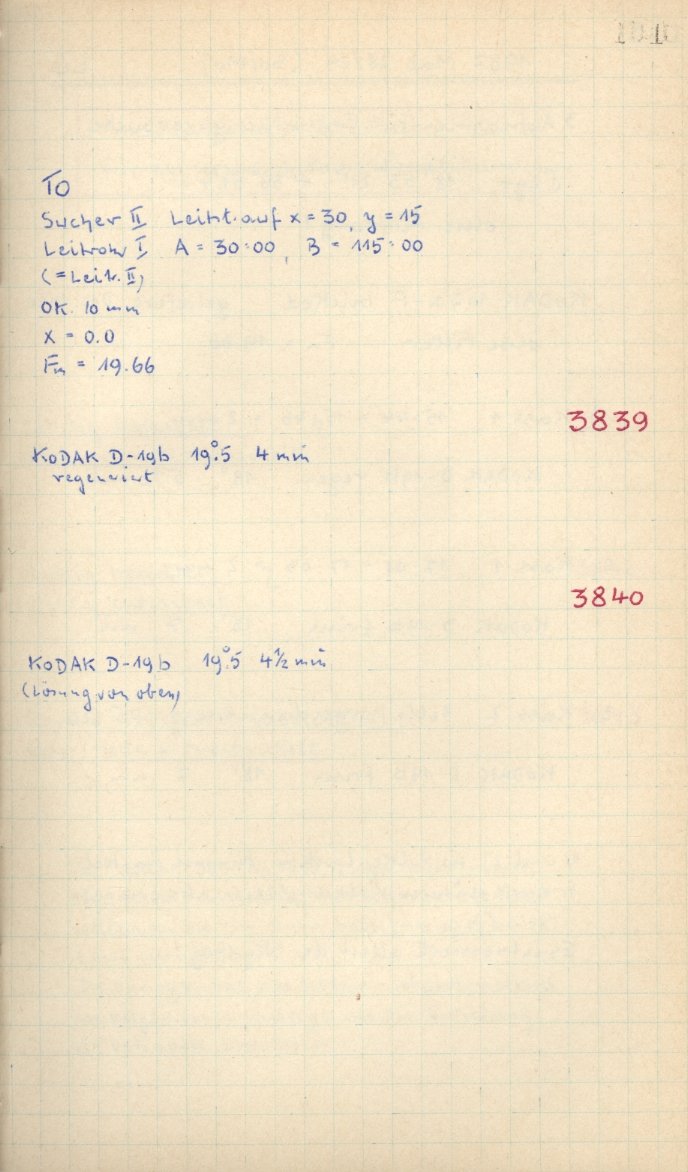 101
TO
Sucher II Leitst. auf x = 30, y = 15
Leitrohr I A = 30:00, B = 115:00
(= Leitr. II)
OK. 10 mm
X = 0.0
Fm = 19.66
3839
KODAK D-19b 19°.5 4 min
regeneriert
3840
KODAK D-19b 19°.5 4½ min
(Lösung von oben)